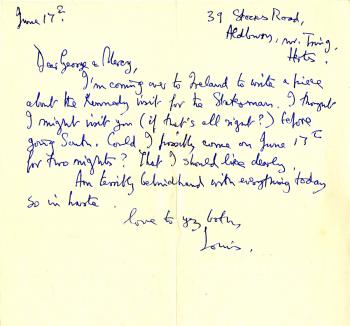 June 17th.
39 Stocks Road,
Aldbury, nr. Tring,
Herts.
Dear George & Mercy,
I'm coming over to Ireland to write a piece
about the Kennedy visit for the Statesman. I thought
I might visit you (if that's all right?) before
going South. Could I possibly come on June
for two nights? That I should like dearly.
Am terribly behindhand with everything today
so in haste.
Love to you both,
Louis.